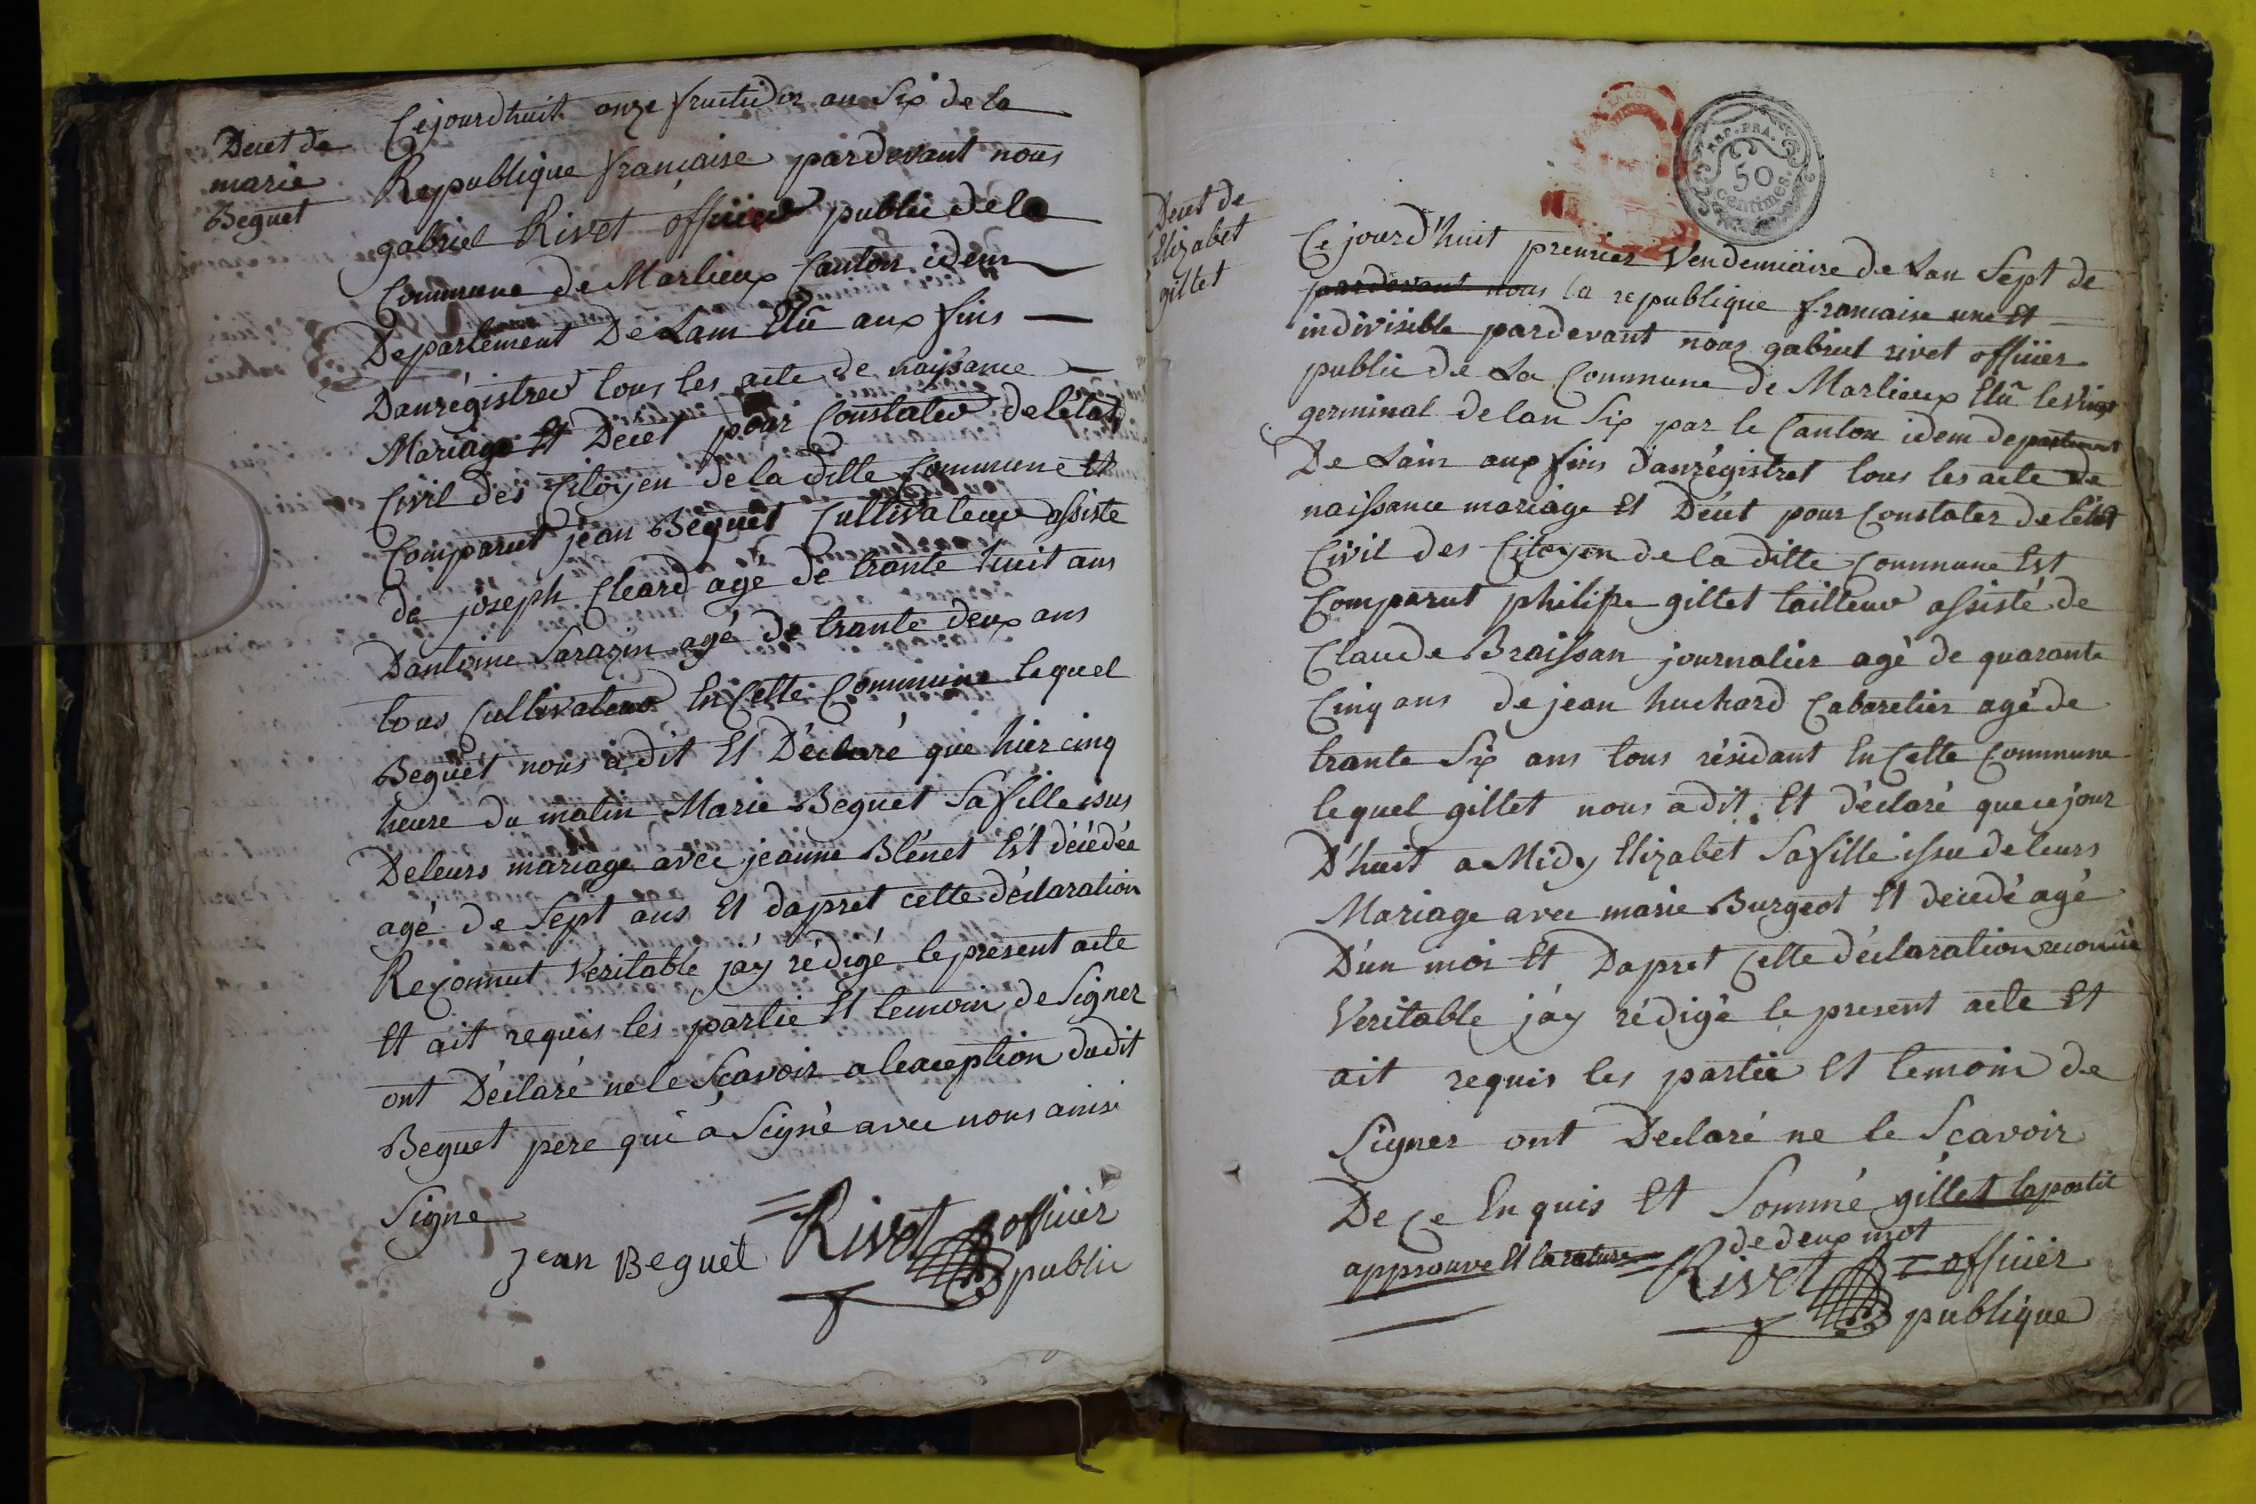 Decet de
marie
Beguet
Cejourdhuit onze fructidor an Six de la
Republique française pardevant nous
gabriel Rivet officier public de la
Commune de Marlieux Canton idem
Departement De Lain Elû aux fins
Danrégistrer tous les acte de naissance
Mariage Et Décet pour Constater de létat
Civil des Citoyen de la ditte Commune Et
Comparut jean Beguet Cultivateur assisté
de joseph Cleard agé de trante huit ans
Dantoine Sarazin agé de trante deux ans
tous Cultivateur En Cette Commune lequel
Beguet nous a dit Et Déclaré que hier cinq
heure du matin Marie Beguet Sa fille issus
De leurs mariage avec jeanne Blénet Est décédée
agé de Sept ans Et dapret cette déclaration
Reconnut Véritable jáy rédigé le présent acte
Et ait requis les partie Et temoin de Signer
ont Déclaré ne le Sçavoir a lexception dudit
Beguet pere qui a Signé avec nous ainsi
Signe
Jean Beguet
Rivet officier
public
REP. FRA.
50
Centimes.
Decet de
Elizabet
gillet
Ce jourd'huit premier Vendemiaire de Lan Sept de
pardevant nous la republique francaise une Et
indivisible pardevant nous gabriel rivet officier
public de La Commune de Marlieux Elû le Vingt
germinal de lan Six par le Canton idem departement
De Lain aux fins danrégistret tous les acte de
naissance mariage Et Décet pour Constater de létat
Civil des Citoyen de la ditte Commune Est
Comparut philipe gillet tailleur assisté de
Claude Braissan journalier agé de quarante
Cinq ans de jean huchard Cabaretier agé de
trante Six ans tous résidant En Cette Commune
lequel gillet nous a dit Et déclaré que ce jour
D'huit a Midy Elizabet Sa fille issue de leurs
Mariage avec marie Burgeot Et décedé agé
D'un moi Et Dapret Cette déclaration reconnue
Véritable jáy rédigé le present acte Et
ait requis les partie Et temoin de
Signer ont Declaré ne le Sçavoir
De Ce Enquis Et Sommé gillet lapostil
de deux mot
approuve Et la rature
Rivet officier
publique